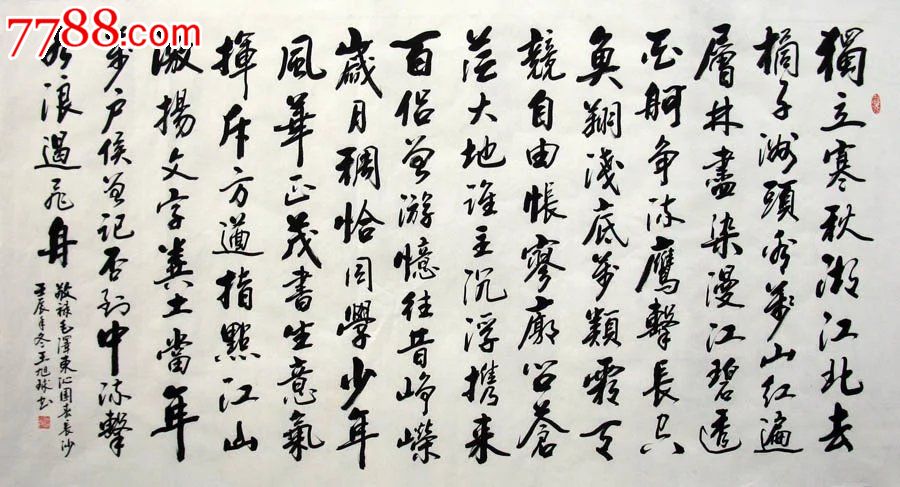 7788.com
獨立寒秋湘江北去
橘子洲頭看萬山紅遍
層林盡染漫江碧透
百舸争流鷹擊長空
魚翔淺底萬類霜天
競自由悵寥廓問蒼
茫大地誰主沉浮携來
百侣曾游憶往昔崢嶸
歲月稠恰同學少年
風華正茂書生意氣
揮斥方遒指點江山
激揚文字糞土當年
萬户侯曾記否到中流擊
水浪遏飛舟
敬録毛澤東沁園春長沙
壬辰年冬王旭球书